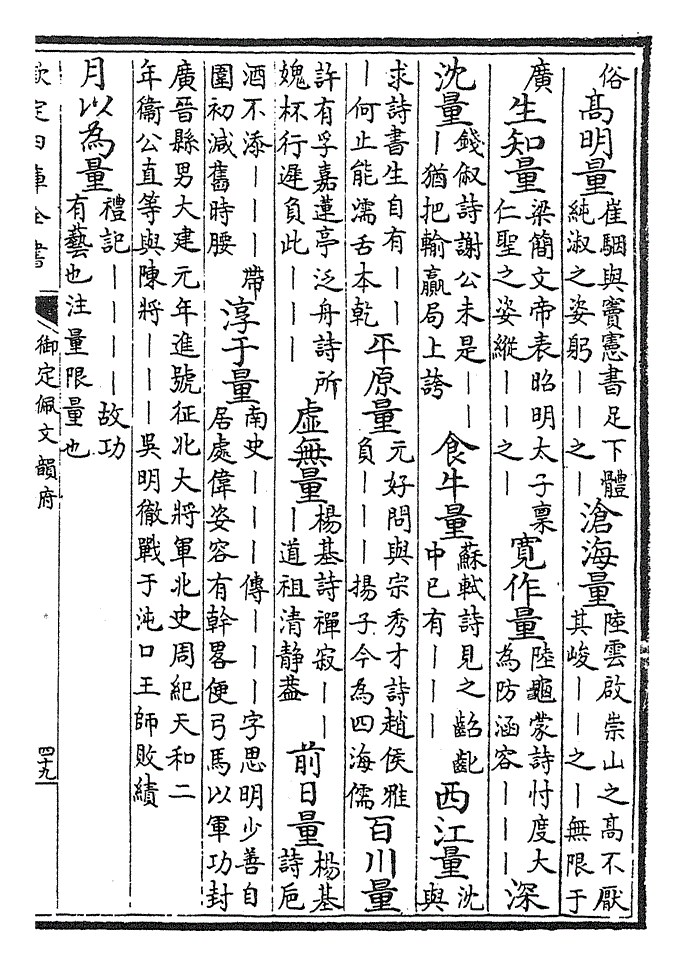 俗
高明量
崔駰與竇憲書足下體
純淑之姿躬——之—
滄海量
陸雲啟崇山之高不厭
其峻——之—無限于
廣
生知量
梁簡文帝表昭明太子稟
仁聖之姿縱——之—
寬作量
陸龜蒙詩忖度大
為防涵容———
深
沈量
錢俶詩謝公未是——
—猶把輸贏局上誇
食牛量
蘇軾詩見之齠齔
中已有———
西江量
沈
與
求詩書生自有——
—何止能濡舌本乾
平原量
元好問與宗秀才詩趙侯雅
負———揚子今為四海儒
百川量
許有孚嘉蓮亭泛舟詩所
媿杯行遲負此———
虛無量
楊基詩禪寂——
—道祖清静葢
前日量
楊基
詩巵
酒不添———帶
圍初減舊時腰
淳于量
南史———傳———字思明少善自
居處偉姿容有幹畧便弓馬以軍功封
廣晉縣男大建元年進號征北大將軍北史周紀天和二
年衞公直等與陳將———吳明徹戰于沌口王師敗績
月以為量
禮記————故功
有藝也注量限量也
欽定四庫全書
御定佩文韻府
四十九